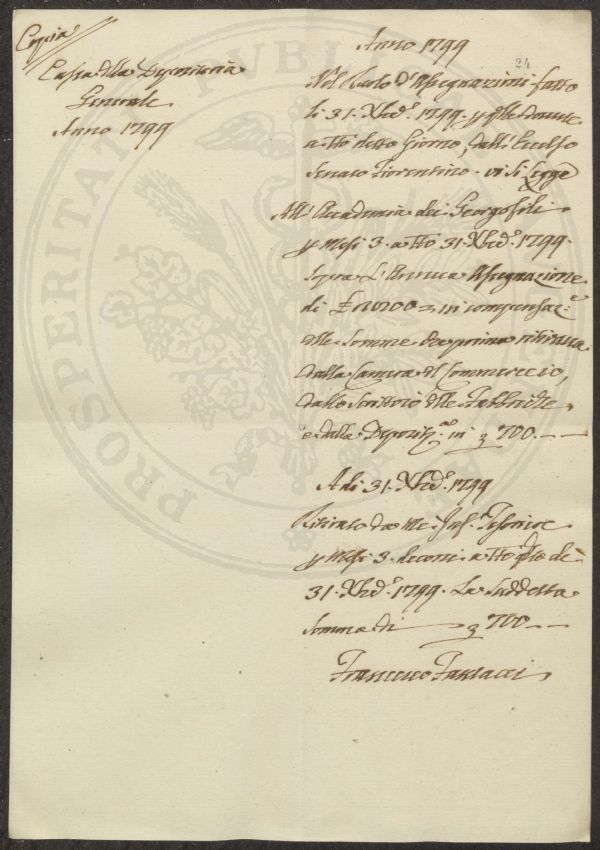 Copia
Cassa della Depositeria
Generale
Anno 1799
Anno 1799
24
Nel Ruolo d'Assegnazioni fatto
li 31. Xbre. 1799. p
a tto detto Giorno, dall'Eccelso
Senato Fiorentino vi si Legge
All'Accademia dei Georgofili
p Mesi 3. a tto 31. Xbre. 1799.
sopra L'Annua Assegnazione
di in compensaz.e
delle Somme da prima ritirate
dalla Camera di Commercio,
dallo Scrittoio delle Fabbriche,
e dalla Deposit.ria in 700.--
A di 31. Xbre. 1799
Ritirato da me Inf.to Tesoriere
p Mesi 3. decorsi a tto dì
31. Xbre. 1799. La Suddetta
Somma di 700.--
Francesco
PROSPERITATI PUBLICAE